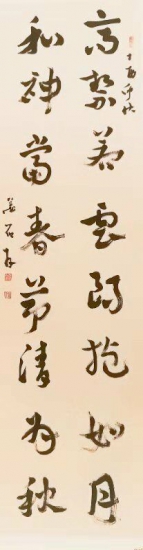 丁酉仲秋
高絜若雲朗抱如月
和神當春節清為秋